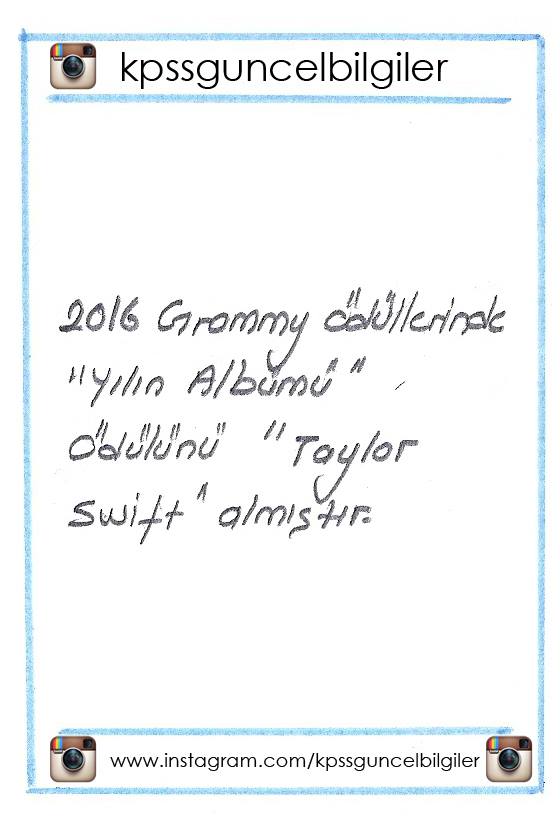 kpssguncelbilgiler
2016 Grammy ödüllerinde
"Yılın Albümü"
Ödülünü "Taylor
Swift" almıştır.
www.instagram.com/kpssguncelbilgiler